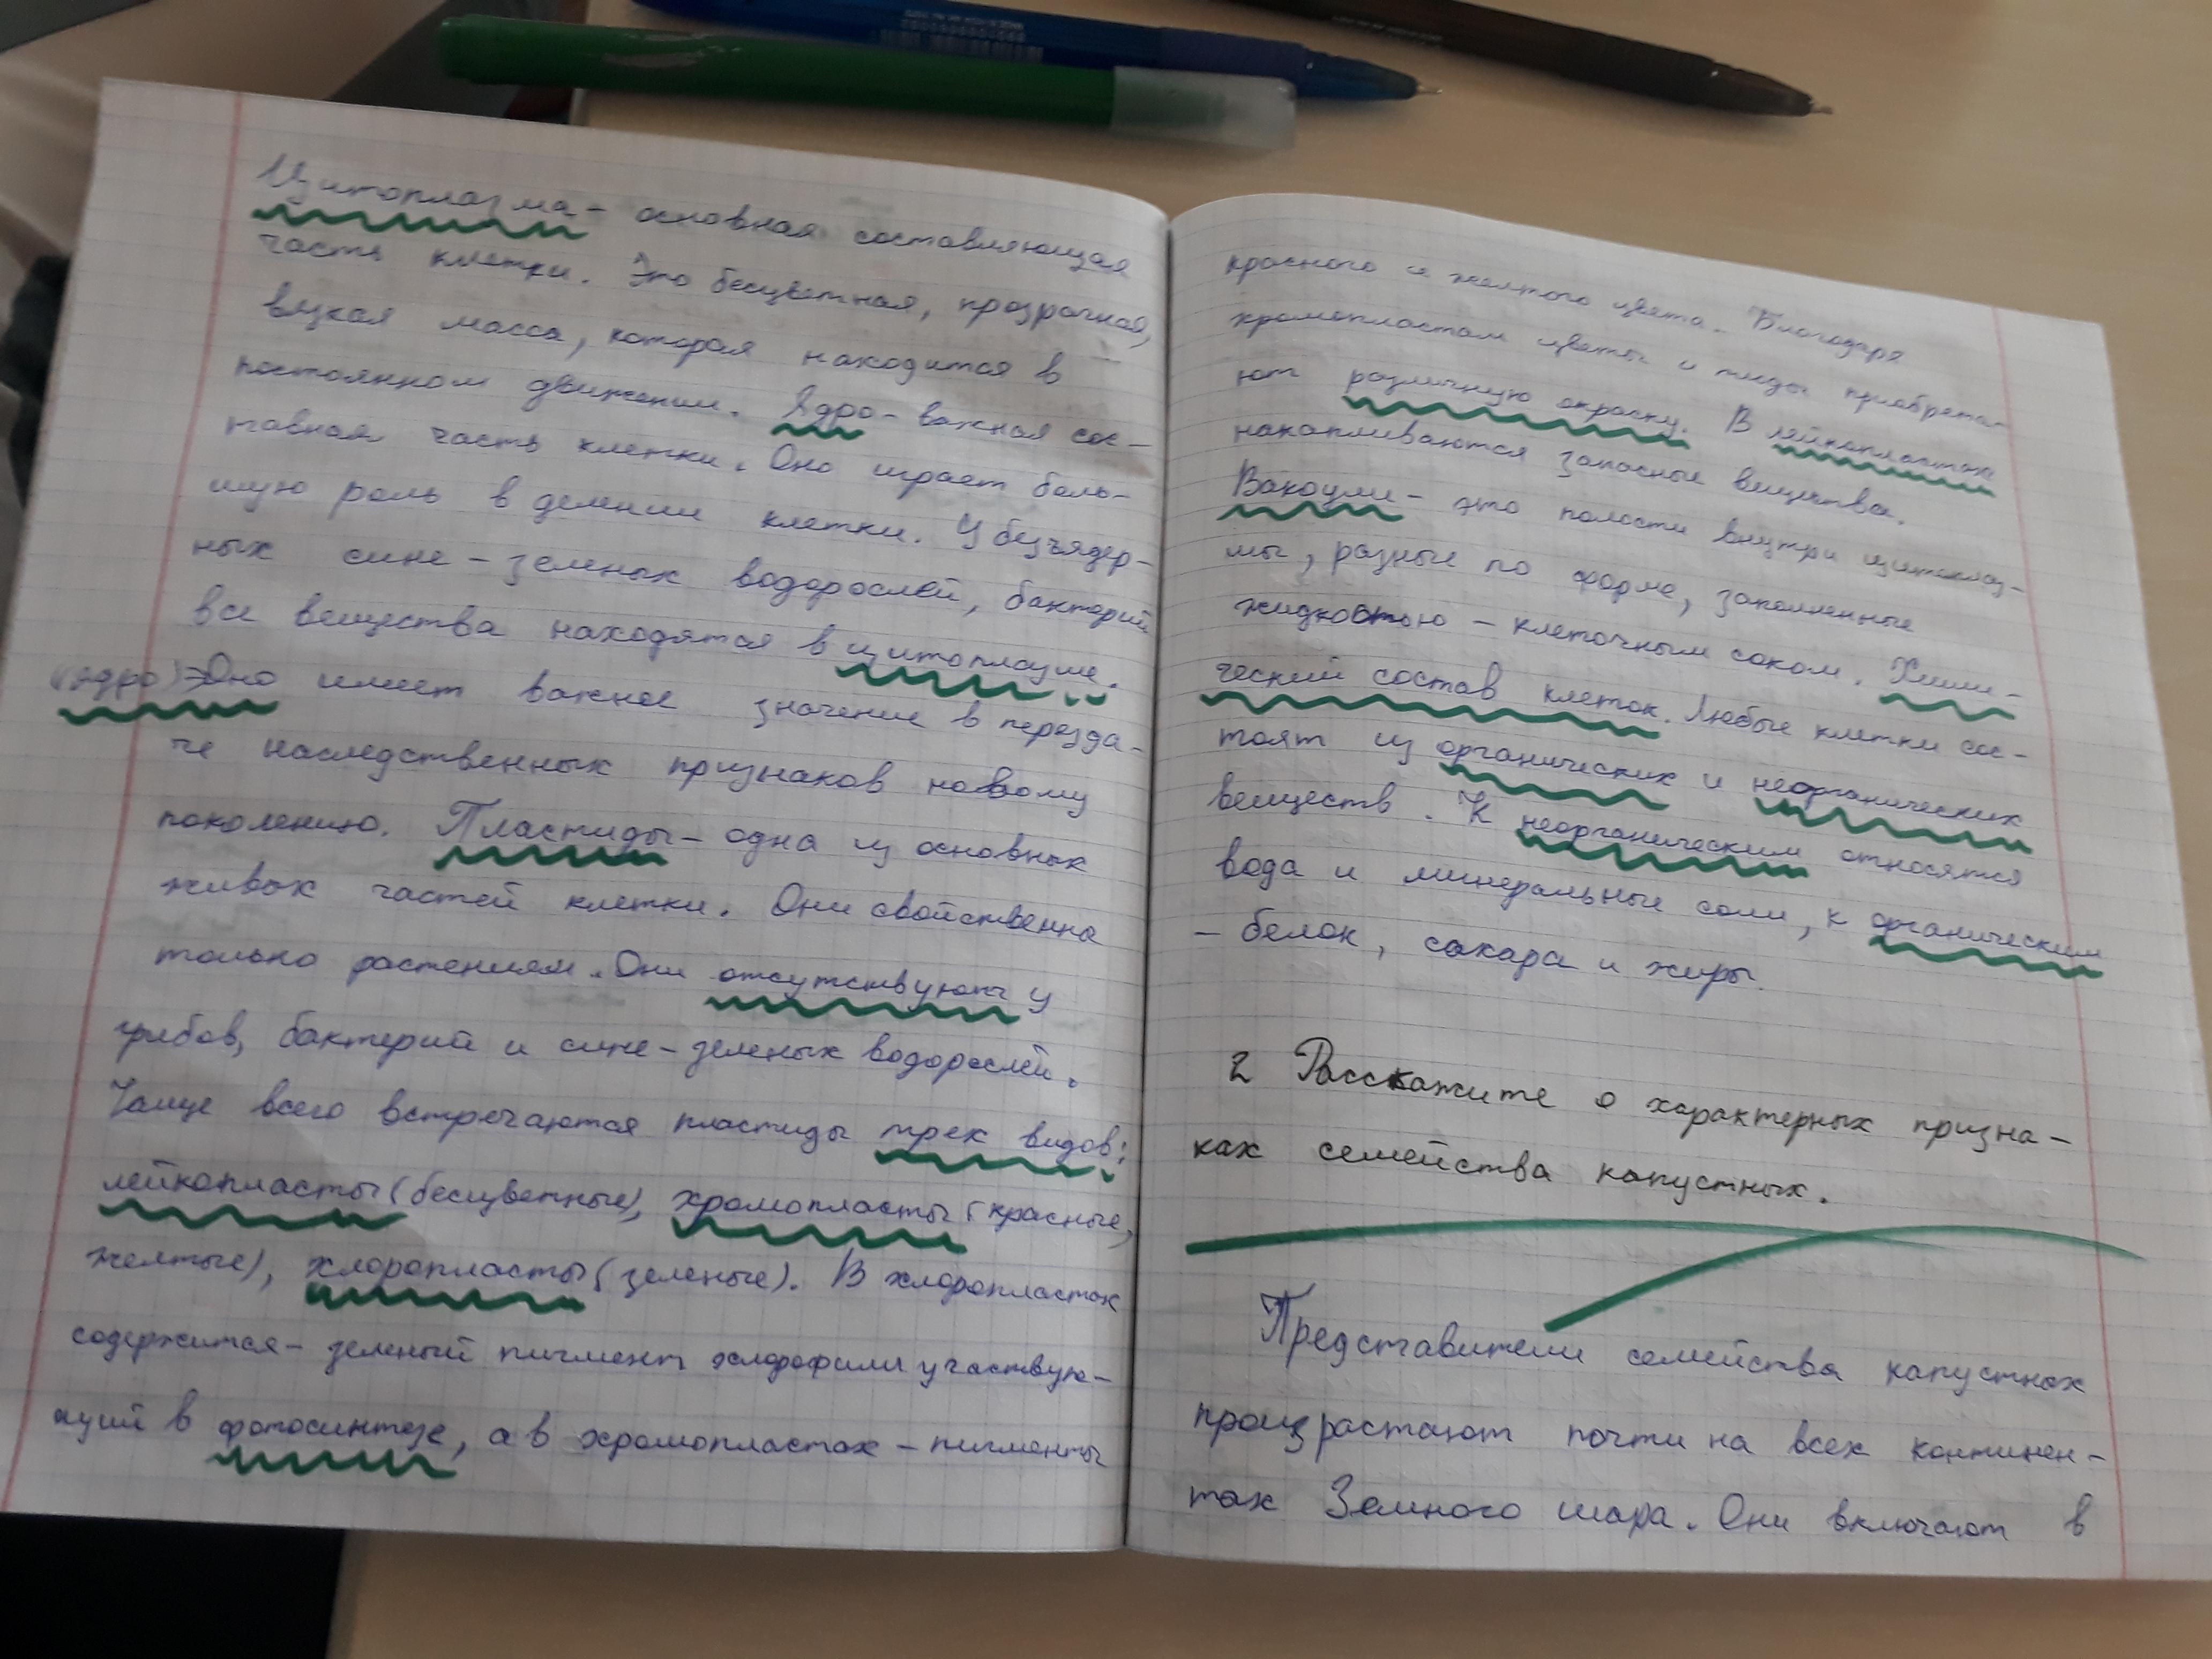 Цитоплазма - основная составляющая
часть клетки. Это бесцветная, прозрачная,
вязкая масса, которая находится в
постоянном движении. Ядро - важная сос-
тавная часть клетки. Оно играет боль-
шую роль в делении клетки. У безъядер-
ных сине-зеленых водорослей, бактерий
все вещества находятся в цитоплазме.
(ядро) Оно имеет важное значение в переда-
че наследственных признаков новому
поколению. Пластиды - одна из основных
живых частей клетки. Они свойственна
только растениям. Они отсутствуют у
грибов, бактерий и сине-зеленых водорослей.
Чаще всего встречаются пластиды трех видов:
лейкопласты (бесцветные), хромопласты (красные,
желтые), хлоропласты (зеленые). В хлоропластах
содержится - зеленый пигмент хлорофилл участвую-
щий в фотосинтезе, а в хромопластах - пигменты
красного и желтого цвета. Благодаря
хромопластам цветы и плоды приобрета-
ют различную окраску. В лейкопластах
накапливаются запасные вещества.
Вакоули - это полости внутри цитоплаз-
мы, разные по форме, заполненные
жидкостью - клеточным соком. Хими-
ческий состав клеток. Любые клетки сос-
тоят из органических и неорганических
веществ. К неорганическим относятся
вода и минеральные соли, к органическим
- белок, сахара и жиры.
2 Расскажите о характерных призна-
ках семейства капустных.
Представители семейства капустных
произрастают почти на всех континен-
тах Земного шара. Они включают в